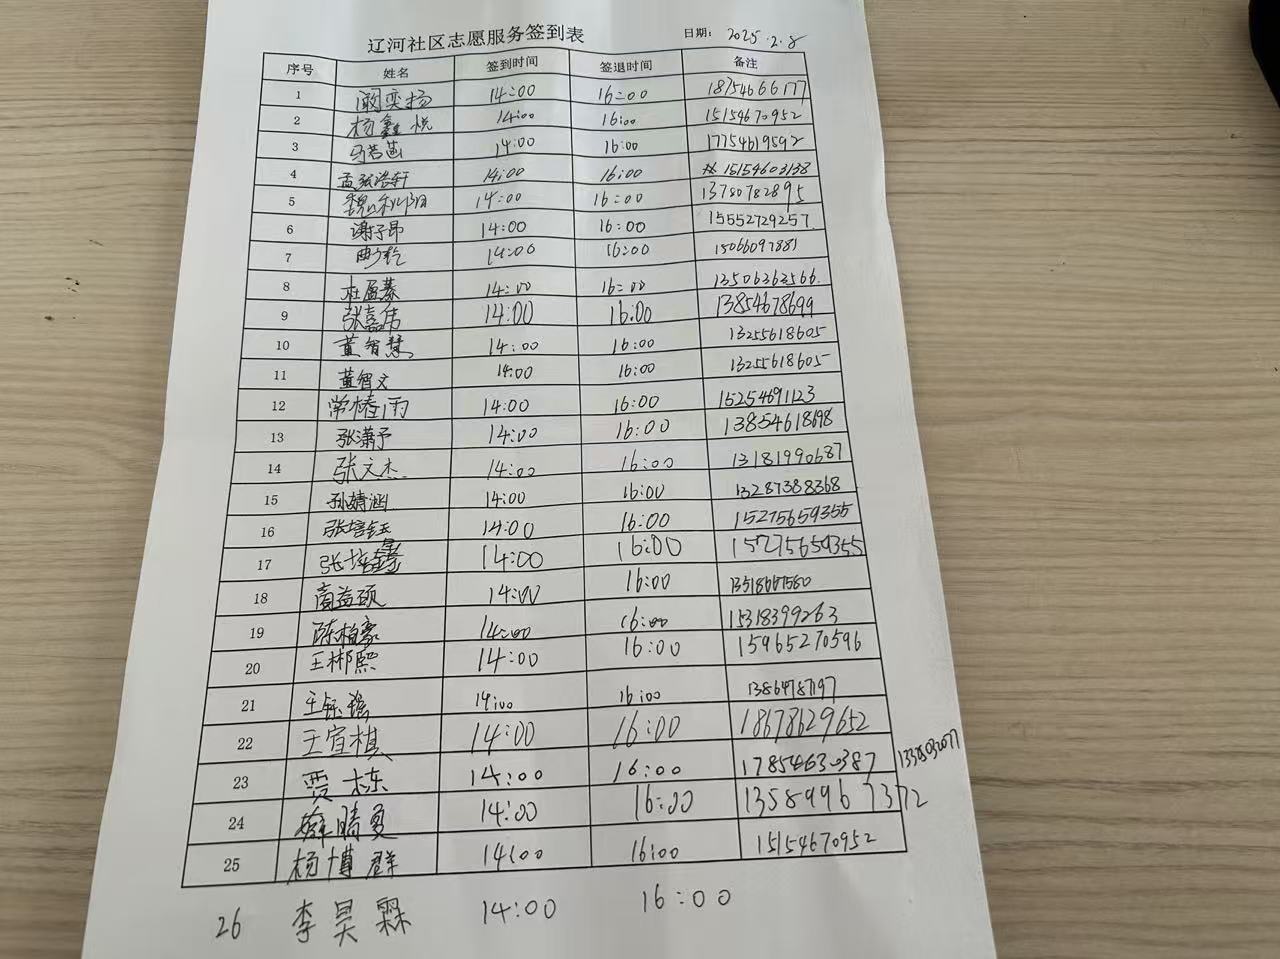 辽河社区志愿服务签到表 日期： 2025.2.8
序号 姓名 签到时间 签退时间 备注
1 阚奕扬 14:00 16:00 18754666177
2 杨鑫悦 14:00 16:00 15154670952
3 马若菡 14:00 16:00 17754619592
4 孟张浩轩 14:00 16:00 15154603138
5 14:00 16:00 13780782895
6 谢子昂 14:00 16:00 15552729257.
7 14:00 16:00 15066097881
8 杜盈蓁 14:00 16:00 13506363566.
9 张嘉伟 14:00 16:00 13854678699
10 董智慧 14:00 16:00 13255618605
11 董智文 14:00 16:00 13255618605
12 常椿雨 14:00 16:00 15254691123
13 张潇予 14:00 16:00 13854618698
14 张文杰 14:00 16:00 13181990687
15 孙婧涵 14:00 16:00 13287388368
16 张培钰 14:00 16:00 15275659355
17 张培鑫 14:00 16:00 15275659355
18 高益硕 14:00 16:00 13518667580
19 陈柏豪 14:00 16:00 15318399263
20 王郴熙 14:00 16:00 15965270596
21 王钰瑶 14:00 16:00 13864787197
22 王宜棋 14:00 16:00 18678629652
23 贾栋 14:00 16:00 17854630387
24 14:00 16:00 13589967372
25 杨博群 14:00 16:00 15154670952
26 李昊霖 14:00 16:00